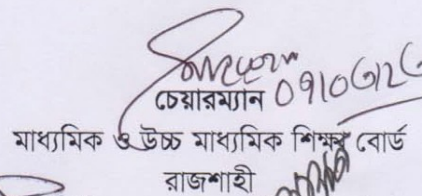 চেয়ারম্যান
মাধ্যমিক ও উচ্চ মাধ্যমিক শিক্ষা বোর্ড
রাজশাহী